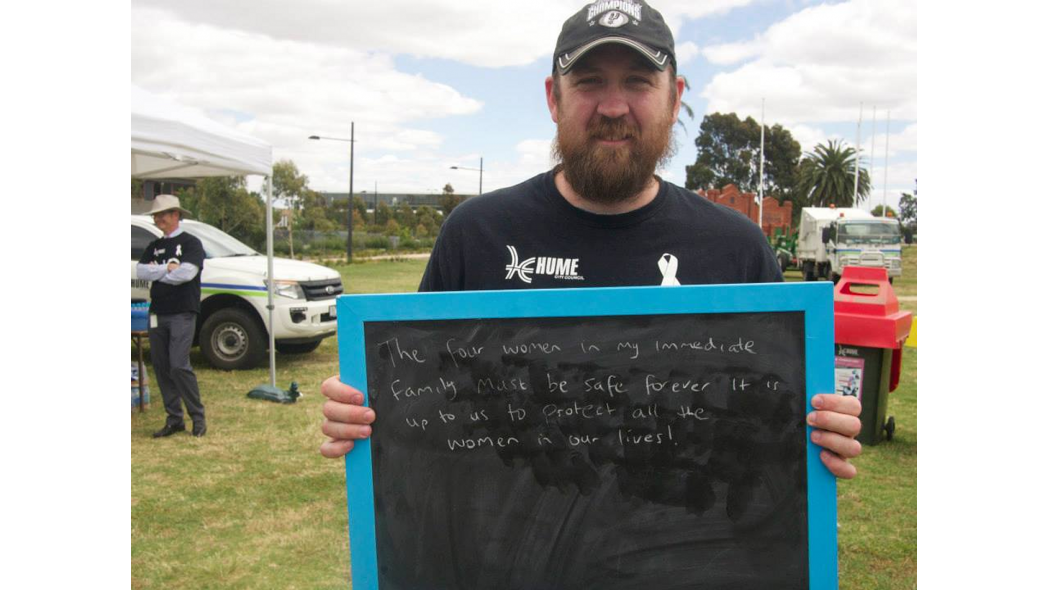 CHAMPIONS
HUME
CITY COUNCIL
The four women in my immediate
family must be safe forever It is
up to us to protect all the
women in our lives!